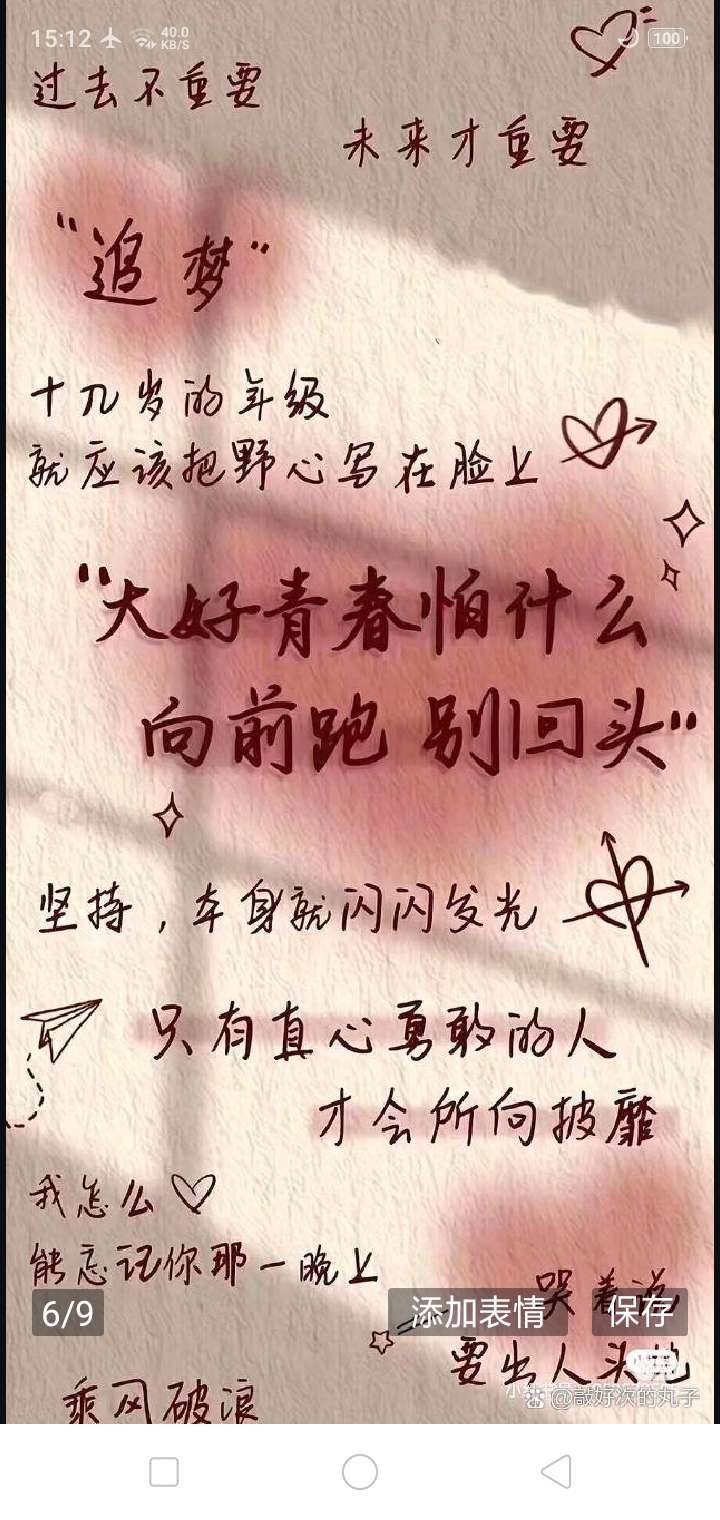 15:12
40.0
KB/S
100
过去不重要
未来才重要
"追梦"
十几岁的年级
就应该把野心写在脸上
"大好青春怕什么
向前跑 别回头"
坚持，本身就闪闪发光
只有真心勇敢的人
才会所向披靡
我怎么
能忘记你那一晚上
哭着说
6/9
添加表情
保存
要出人头地
乘风破浪
@敲好次的丸子